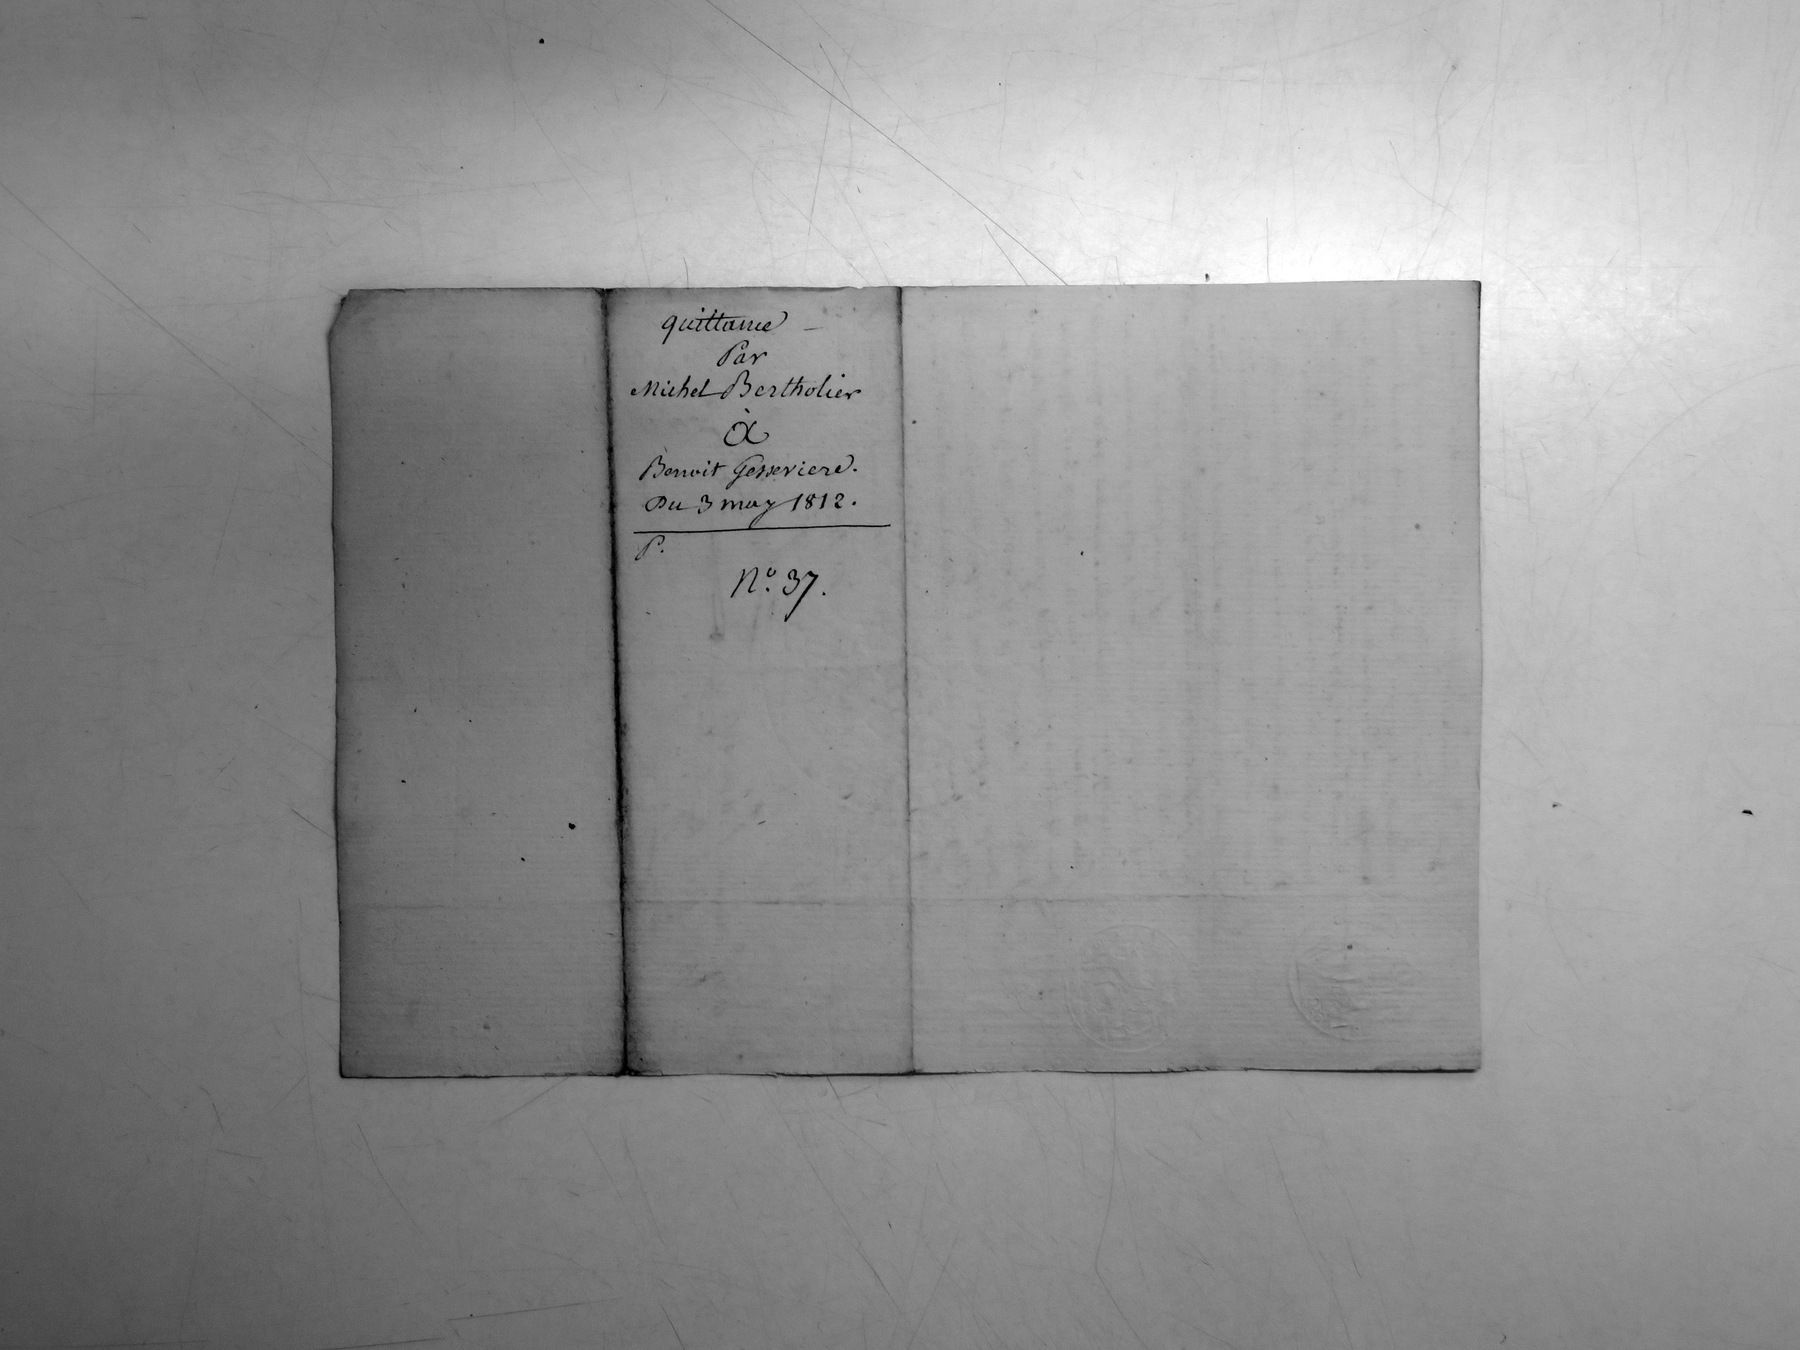 quittance
Par
Michel Bertholier
à
Benoit Gesseriere.
Du 3 may 1812.
P.
N.º 37.